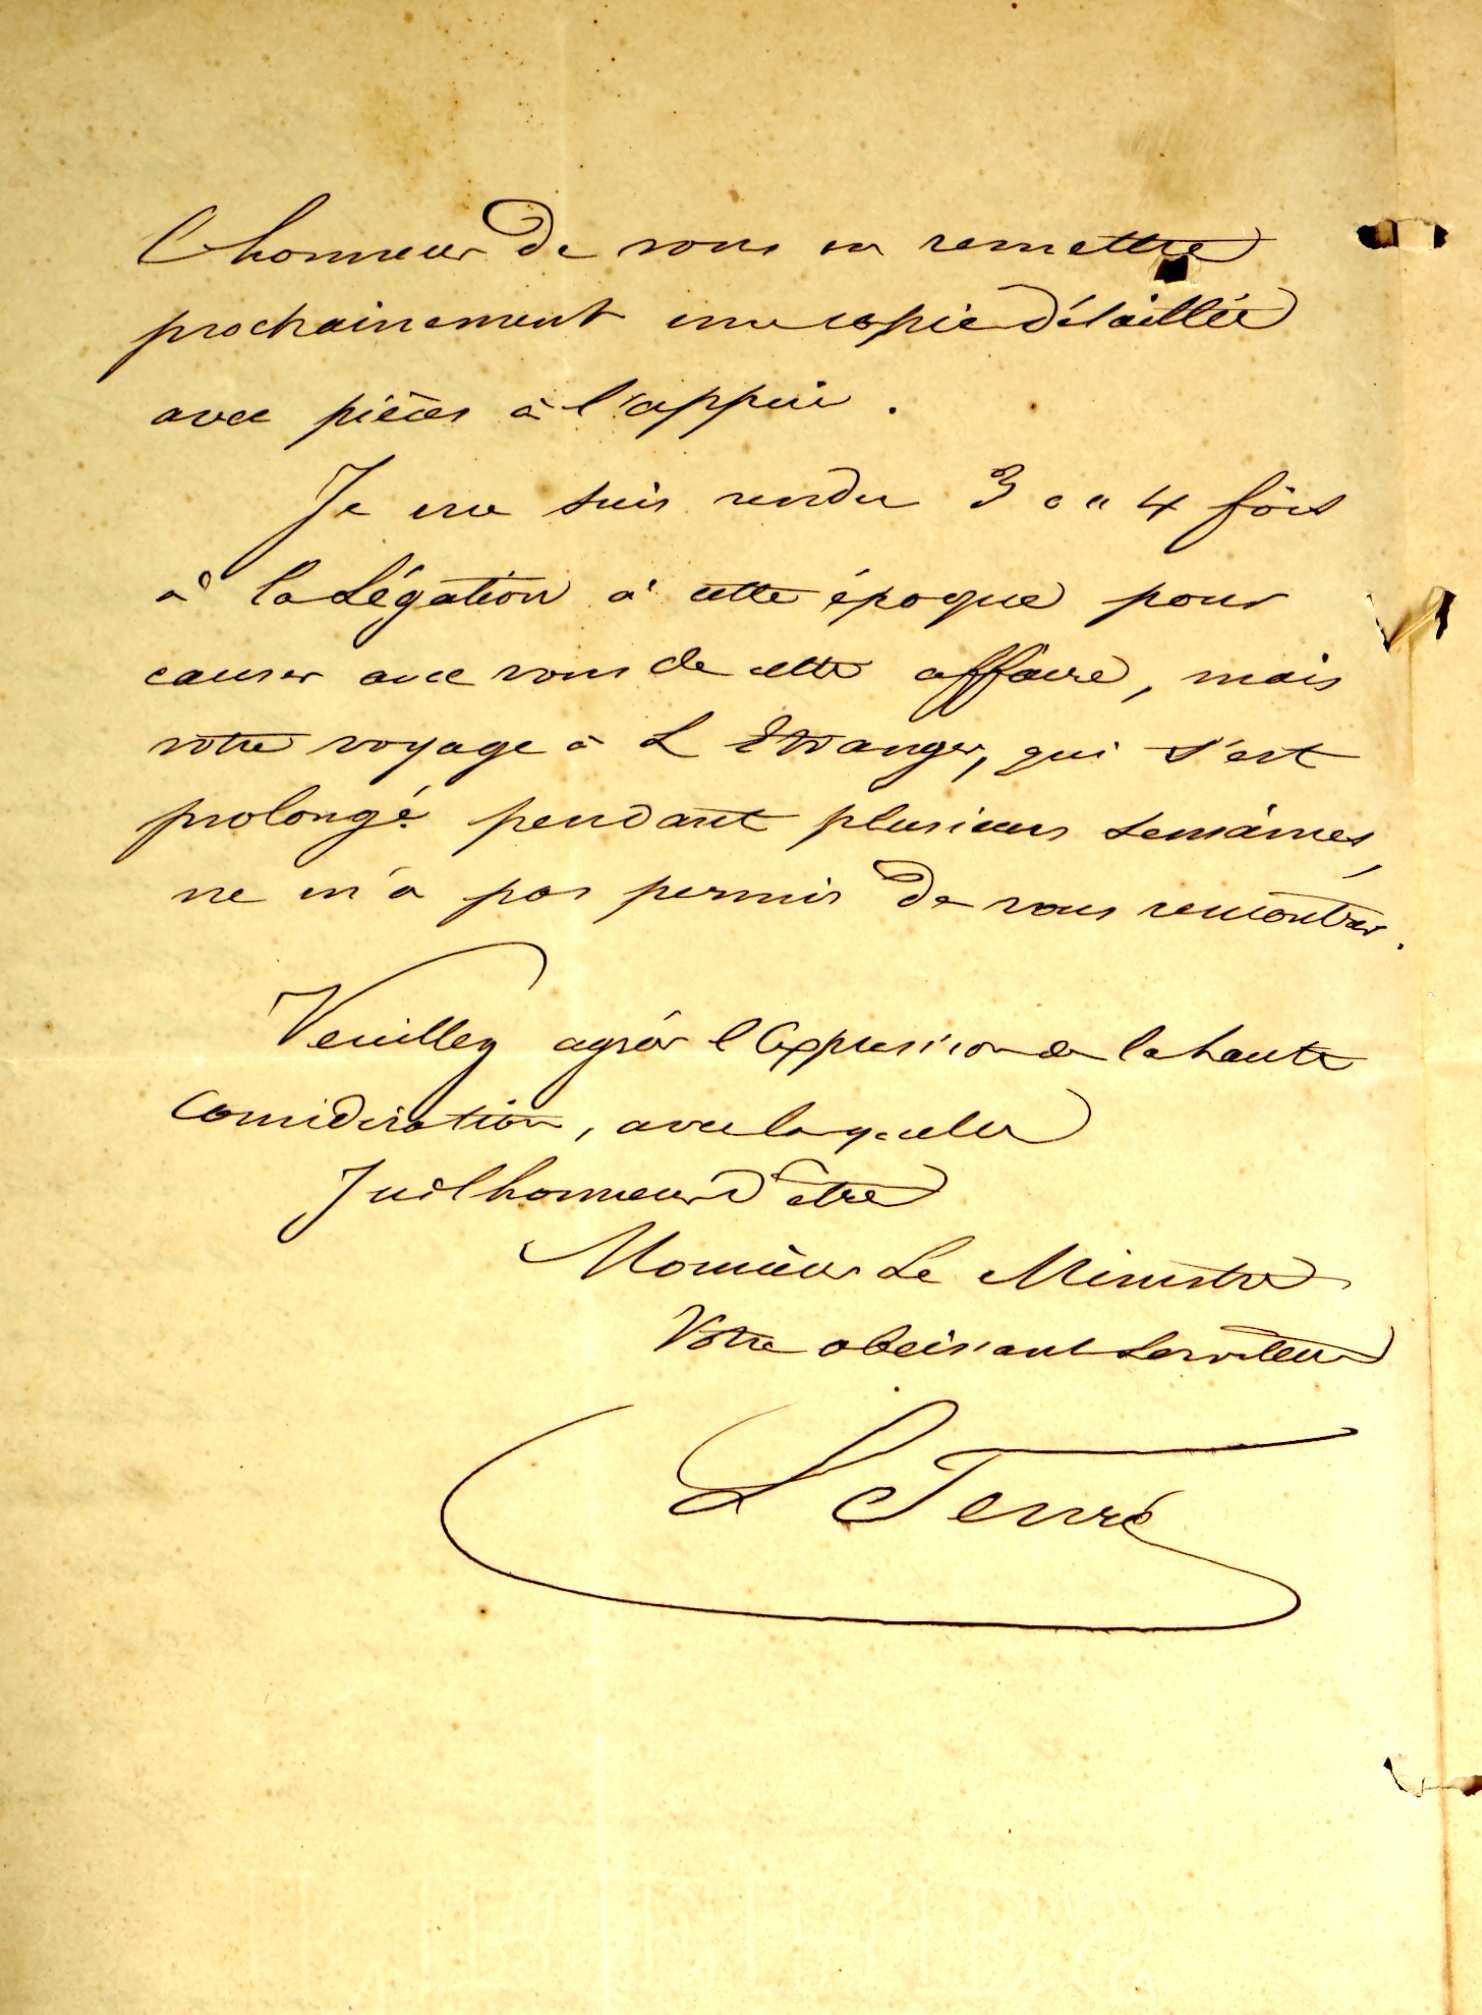 l'honneur de vous en remettre
prochainement une copie détaillée
avec pièces à l'appui.
Je me suis rendu 3 ou 4 fois
à la Légation à cette époque pour
causer avec vous de cette affaire, mais
votre voyage à L'Etranger, qui s'est
prolongé pendant plusieurs semaines,
ne m'a pas permis de vous rencontrer.
Veuillez agréer l'expression de la haute
considération, avec laquelle
J'ai l'honneur d'être
Monsieur Le Ministre
Votre obeissant Serviteur
L Tenré